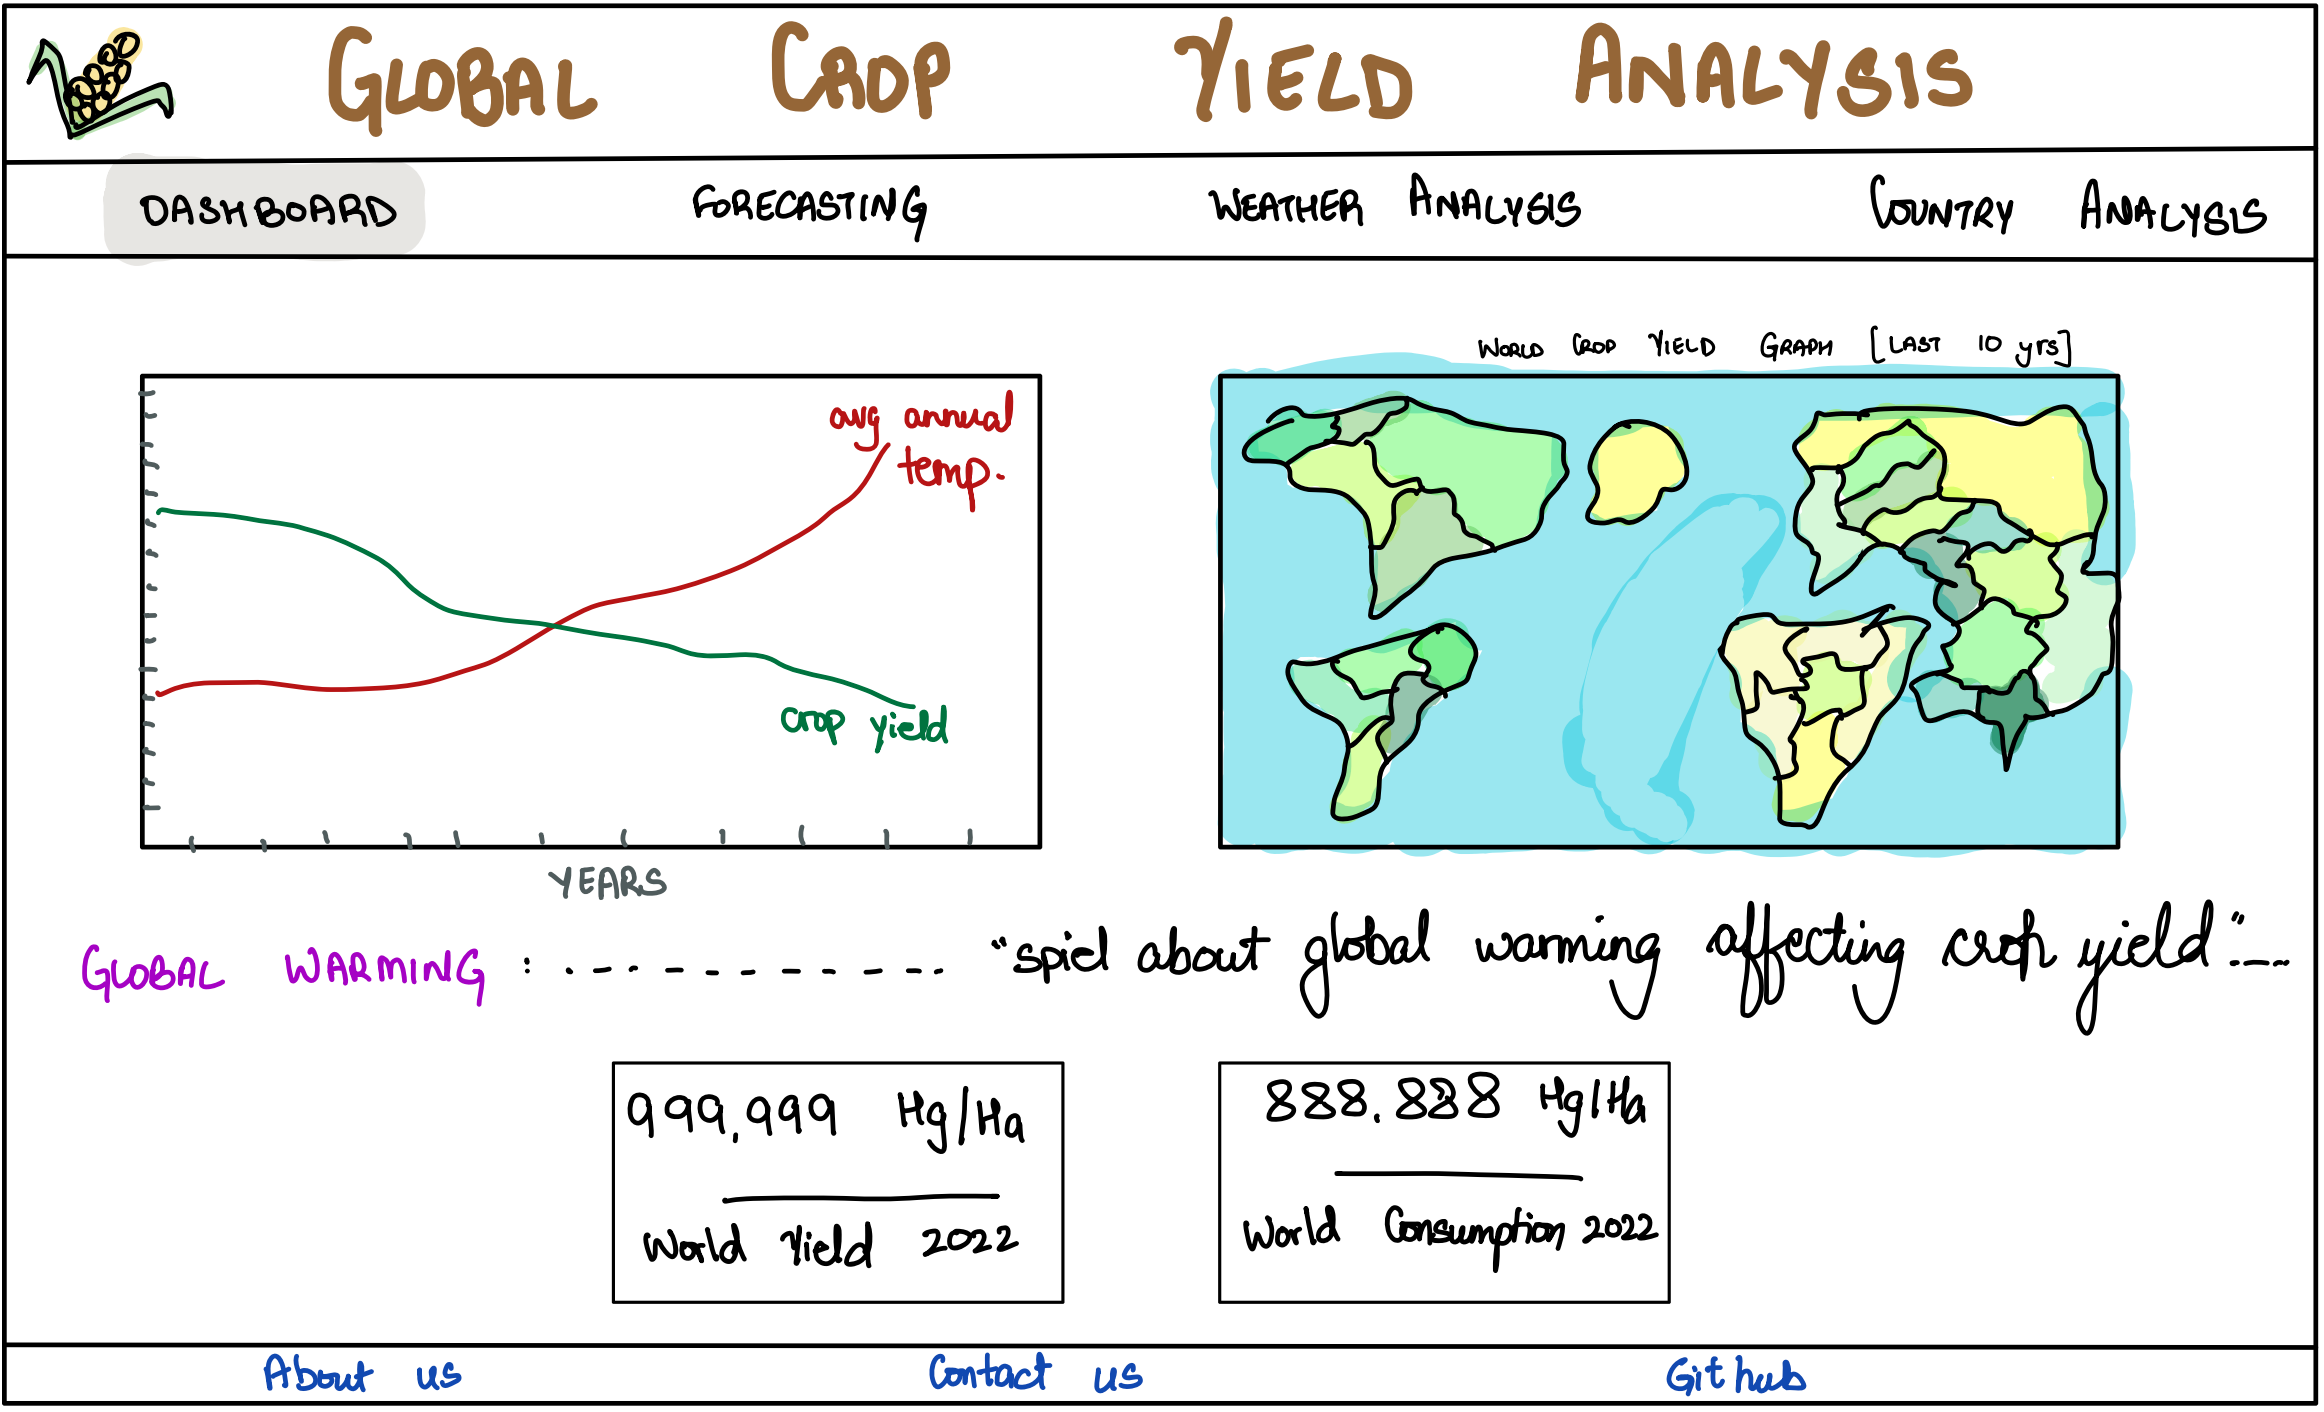 GLOBAL CROP YIELD ANALYSIS
DASHBOARD FORECASTING WEATHER ANALYSIS COUNTRY ANALYSIS
WORLD CROP YIELD GRAPH [LAST 10 yrs]
avg annual
temp.
crop yield
YEARS
GLOBAL WARMING : . - - - - - - - - - "spiel about global warming affecting crop yield" ---
999,999 Hg/Ha
World Yield 2022
888.888 Hg/Ha
World Consumption 2022
About us Contact us Github